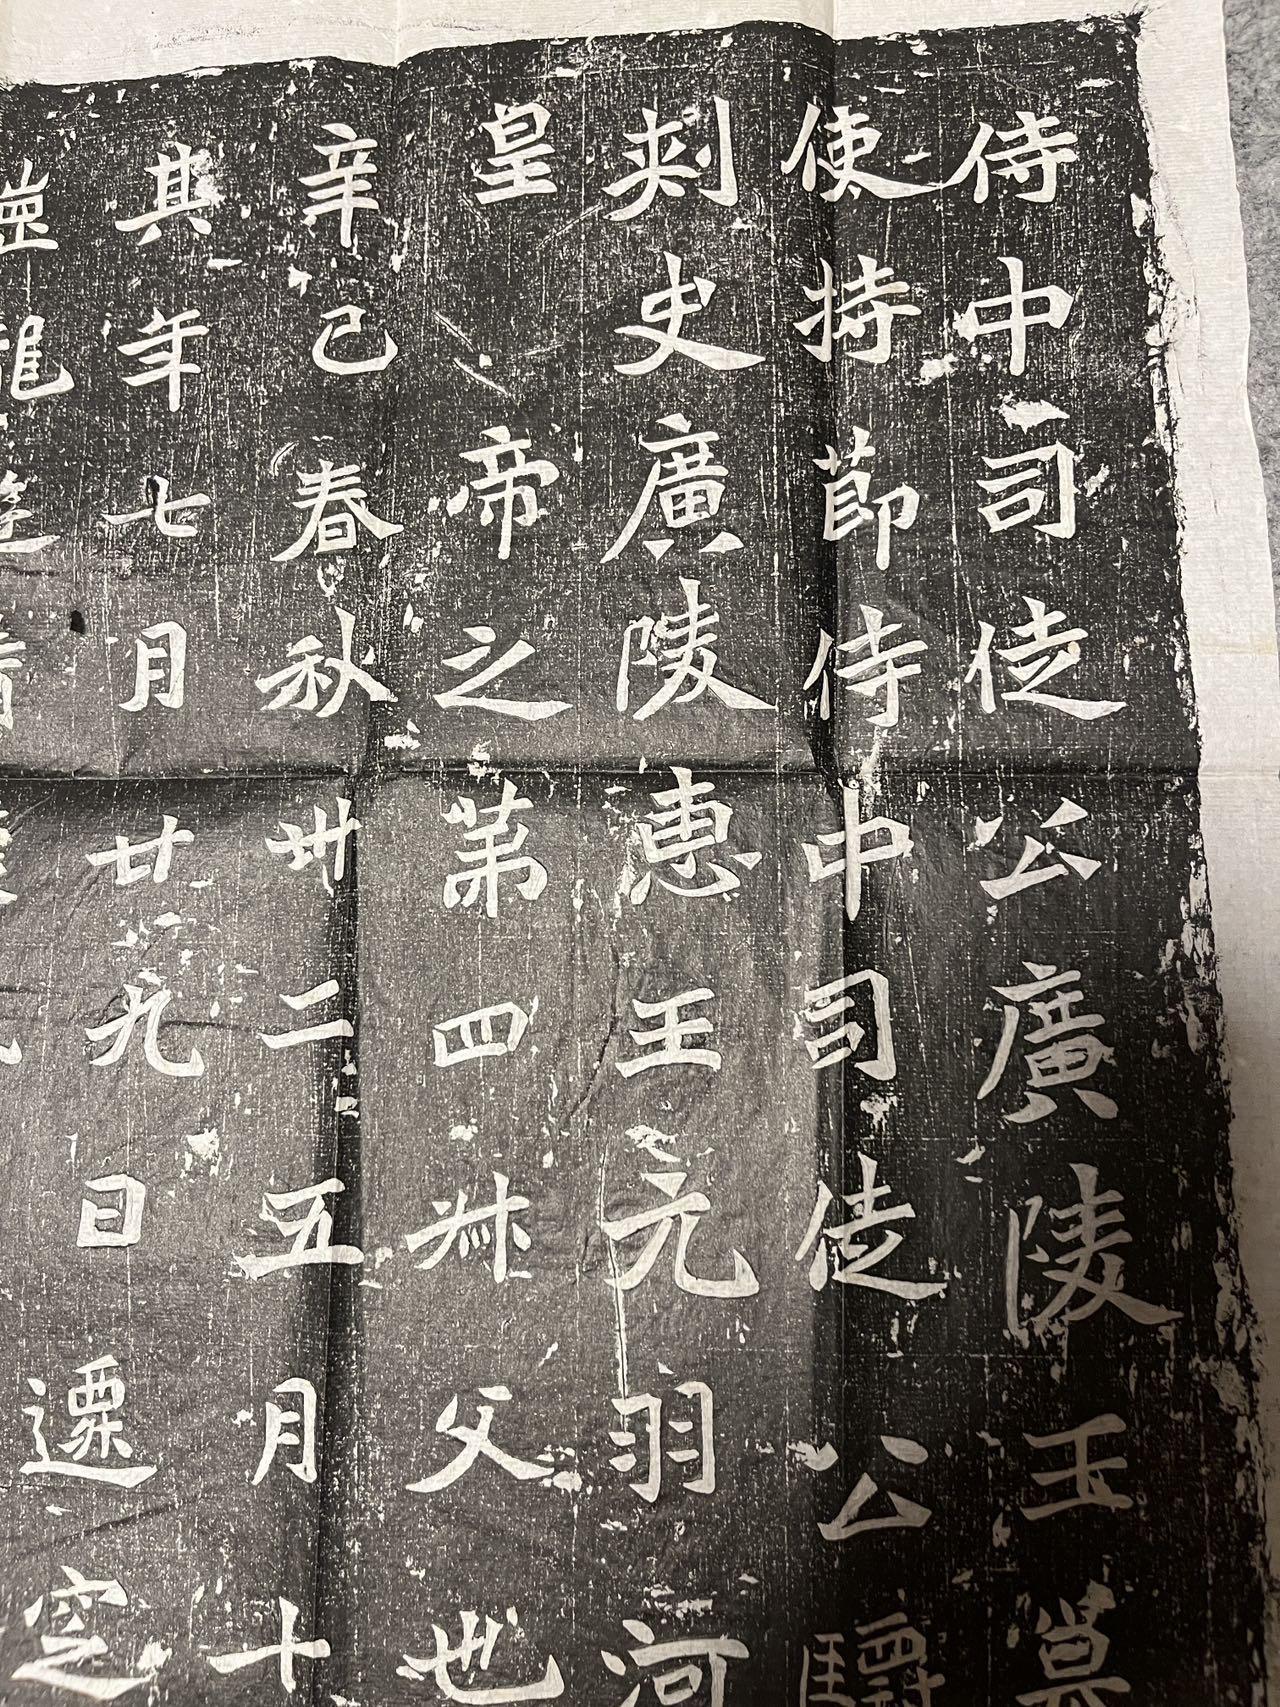 侍中司徒公廣陵王墓
使持節侍中司徒公驃
刺史廣陵惠王元羽河
皇帝之第四叔父也
辛巳春秋卅二五月十
其年七月廿九日遷窆